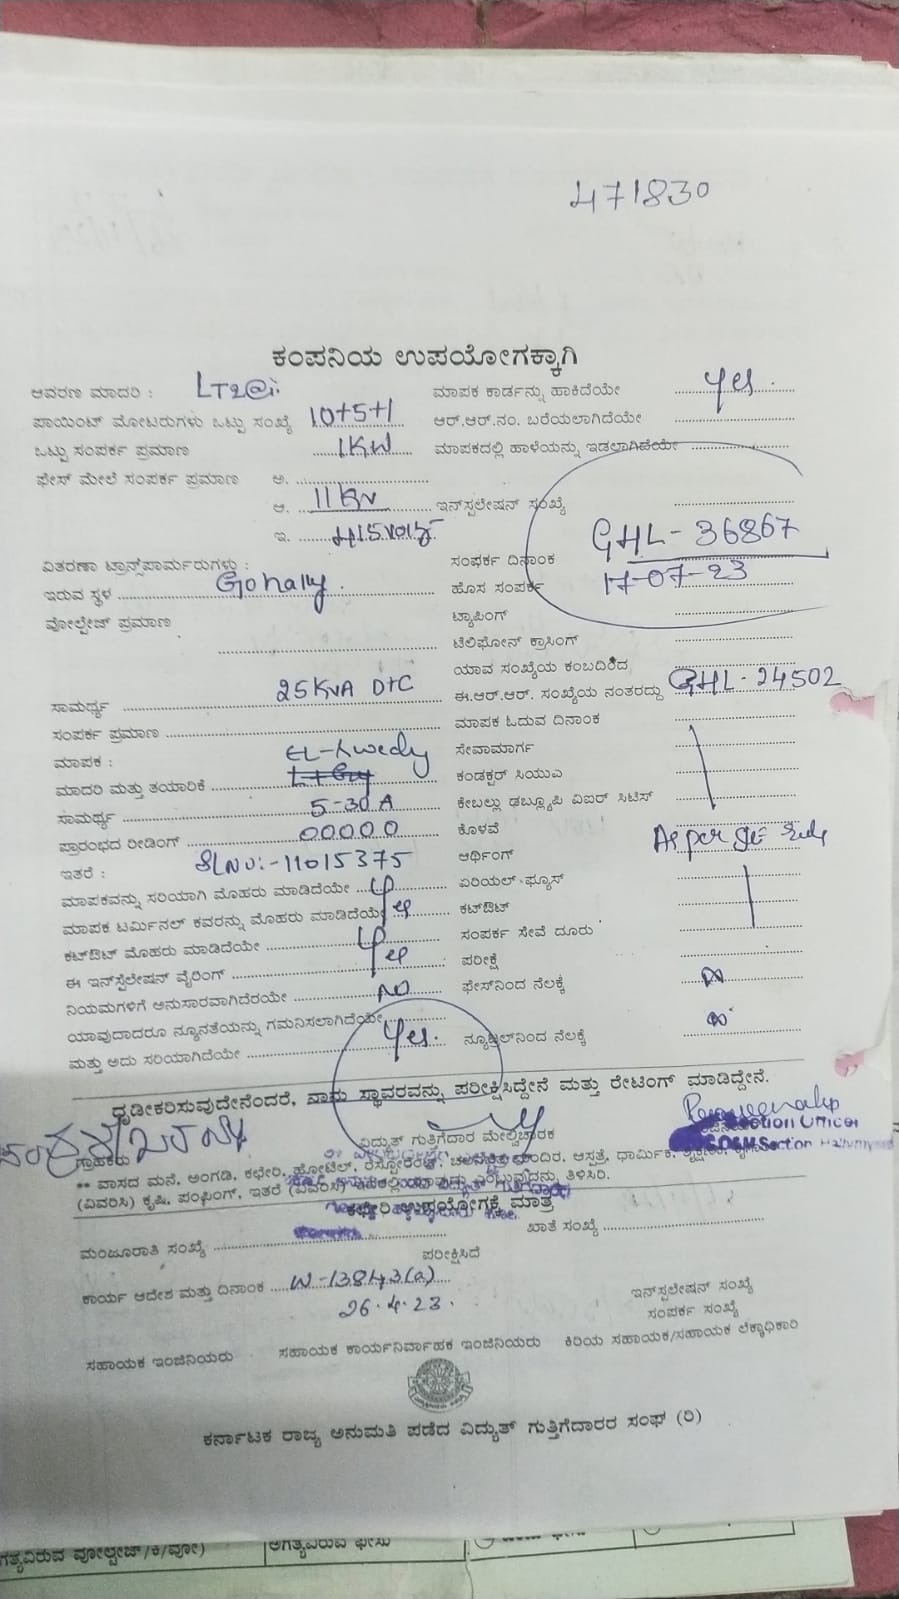 471830
ಕಂಪನಿಯ ಉಪಯೋಗಕ್ಕಾಗಿ
ಆವರಣ ಮಾದರಿ : LT2@i. ಮಾಪಕ ಕಾರ್ಡನ್ನು ಹಾಕಿದೆಯೇ Yes.
ಪಾಯಿಂಟ್ ಮೋಟರುಗಳು ಒಟ್ಟು ಸಂಖ್ಯೆ 10+5+1 ಆರ್.ಆರ್.ನಂ. ಬರೆಯಲಾಗಿದೆಯೇ
ಒಟ್ಟು ಸಂಪರ್ಕ ಪ್ರಮಾಣ 1KW ಮಾಪಕದಲ್ಲಿ ಹಾಳೆಯನ್ನು ಇಡಲಾಗಿದೆಯೇ
ಫೇಸ್ ಮೇಲೆ ಸಂಪರ್ಕ ಪ್ರಮಾಣ ಅ.
ಆ. 11KV ಇನ್‌ಸ್ಟಲೇಷನ್ ಸಂಖ್ಯೆ GHL-36867
ಇ. 415 volt
ವಿತರಣಾ ಟ್ರಾನ್ಸ್‌ಪಾರ್ಮರುಗಳು : ಸಂಪರ್ಕ ದಿನಾಂಕ 17-07-23
ಇರುವ ಸ್ಥಳ Gohally. ಹೊಸ ಸಂಪರ್ಕ
ವೋಲ್ಟೇಜ್ ಪ್ರಮಾಣ ಟ್ಯಾಪಿಂಗ್
ಟೆಲಿಫೋನ್ ಕ್ರಾಸಿಂಗ್
ಯಾವ ಸಂಖ್ಯೆಯ ಕಂಬದಿಂದ
ಸಾಮರ್ಥ್ಯ 25KVA DTC ಈ.ಆರ್.ಆರ್. ಸಂಖ್ಯೆಯ ನಂತರದ್ದು GHL-24502
ಸಂಪರ್ಕ ಪ್ರಮಾಣ ಮಾಪಕ ಓದುವ ದಿನಾಂಕ
ಮಾಪಕ : ಸೇವಾಮಾರ್ಗ
ಮಾದರಿ ಮತ್ತು ತಯಾರಿಕೆ ಕಂಡಕ್ಟರ್ ಸಿಯುಎ
ಸಾಮರ್ಥ್ಯ 5-30A ಕೇಬಲ್ಲು ಡಬ್ಲ್ಯೂಪಿ ವಿಐರ್ ಸಿಟಿಸ್
ಪ್ರಾರಂಭದ ರೀಡಿಂಗ್ 00000 ಕೊಳವೆ
ಇತರೆ : SLNO:-11015375 ಆರ್ಥಿಂಗ್ As per
ಮಾಪಕವನ್ನು ಸರಿಯಾಗಿ ಮೊಹರು ಮಾಡಿದೆಯೇ ಏರಿಯಲ್-ಫ್ಯೂಸ್
ಮಾಪಕ ಟರ್ಮಿನಲ್ ಕವರನ್ನು ಮೊಹರು ಮಾಡಿದೆಯೇ ಕಟ್‌ಔಟ್
ಕಟ್‌ಔಟ್ ಮೊಹರು ಮಾಡಿದೆಯೇ ಸಂಪರ್ಕ ಸೇವೆ ದೂರು
ಈ ಇನ್‌ಸ್ಟಲೇಷನ್ ವೈರಿಂಗ್ ಪರೀಕ್ಷೆ
ನಿಯಮಗಳಿಗೆ ಅನುಸಾರವಾಗಿದೆಯೇ NO ಫೇಸ್‌ನಿಂದ ನೆಲಕ್ಕೆ
ಯಾವುದಾದರೂ ನ್ಯೂನತೆಯನ್ನು ಗಮನಿಸಲಾಗಿದೆಯೇ
ಮತ್ತು ಅದು ಸರಿಯಾಗಿದೆಯೇ Yes. ನ್ಯೂಟ್ರಲ್‌ನಿಂದ ನೆಲಕ್ಕೆ
ಧೃಡೀಕರಿಸುವುದೇನೆಂದರೆ, ನಾನು ಸ್ಥಾವರವನ್ನು ಪರೀಕ್ಷಿಸಿದ್ದೇನೆ ಮತ್ತು ರೇಟಿಂಗ್ ಮಾಡಿದ್ದೇನೆ.
ಗ್ರಾಹಕರು ವಿದ್ಯುತ್ ಗುತ್ತಿಗೆದಾರ ಮೇಲ್ವಿಚಾರಕ Section Officer
O&M Section
** ವಾಸದ ಮನೆ, ಅಂಗಡಿ, ಕಛೇರಿ, ಹೋಟೆಲ್, ಆಸ್ಪತ್ರೆ, ಧಾರ್ಮಿಕ,
(ವಿವರಿಸಿ) ಕೃಷಿ, ಪಂಪಿಂಗ್, ಇತರೆ (ವಿವರಿಸಿ) ಎಂಬುವುದನ್ನು ತಿಳಿಸಿರಿ.
ಕಛೇರಿ ಉಪಯೋಗಕ್ಕೆ ಮಾತ್ರ
ಮಂಜೂರಾತಿ ಸಂಖ್ಯೆ ಖಾತೆ ಸಂಖ್ಯೆ
ಪರೀಕ್ಷಿಸಿದೆ
ಕಾರ್ಯ ಆದೇಶ ಮತ್ತು ದಿನಾಂಕ W-13843(a) ಇನ್‌ಸ್ಟಲೇಷನ್ ಸಂಖ್ಯೆ
26.4.23. ಸಂಪರ್ಕ ಸಂಖ್ಯೆ
ಸಹಾಯಕ ಇಂಜಿನಿಯರು ಸಹಾಯಕ ಕಾರ್ಯನಿರ್ವಾಹಕ ಇಂಜಿನಿಯರು ಕಿರಿಯ ಸಹಾಯಕ/ಸಹಾಯಕ ಲೆಕ್ಕಾಧಿಕಾರಿ
ಕರ್ನಾಟಕ ರಾಜ್ಯ ಅನುಮತಿ ಪಡೆದ ವಿದ್ಯುತ್ ಗುತ್ತಿಗೆದಾರರ ಸಂಘ (ರಿ)
ಅಗತ್ಯವಿರುವ ಫೇಸು